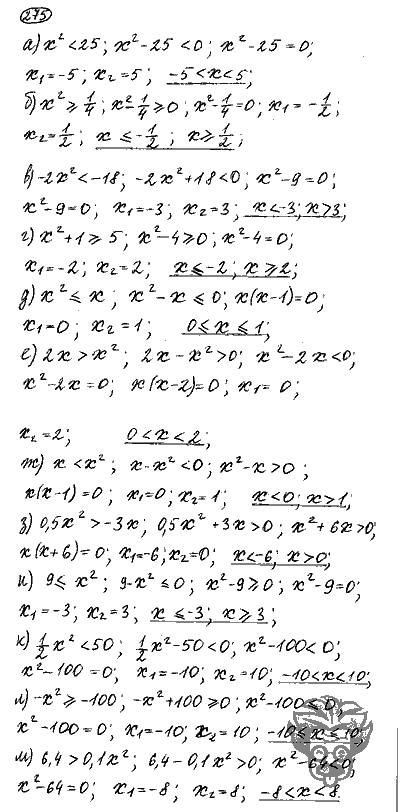 275
а) x² < 25; x² - 25 < 0; x² - 25 = 0;
x₁ = -5; x₂ = 5; -5 < x < 5;
б) x² ⩾ 1/4; x² - 1/4 ⩾ 0; x² - 1/4 = 0; x₁ = -1/2;
x₂ = 1/2; x ⩽ -1/2; x ⩾ 1/2;
в) -2x² < -18; -2x² + 18 < 0; x² - 9 = 0;
x² - 9 = 0; x₁ = -3; x₂ = 3; x < -3; x > 3;
г) x² + 1 ⩾ 5; x² - 4 ⩾ 0; x² - 4 = 0;
x₁ = -2; x₂ = 2; x ⩽ -2; x ⩾ 2;
д) x² ⩽ x; x² - x ⩽ 0; x(x-1) = 0;
x₁ = 0; x₂ = 1; 0 ⩽ x ⩽ 1;
е) 2x > x²; 2x - x² > 0; x² - 2x < 0;
x² - 2x = 0; x(x-2) = 0; x₁ = 0;
x₂ = 2; 0 < x < 2;
ж) x < x²; x - x² < 0; x² - x > 0;
x(x-1) = 0; x₁ = 0; x₂ = 1; x < 0; x > 1;
з) 0,5x² > -3x; 0,5x² + 3x > 0; x² + 6x > 0;
x(x+6) = 0; x₁ = -6; x₂ = 0; x < -6; x > 0;
и) 9 ⩽ x²; 9 - x² ⩽ 0; x² - 9 ⩾ 0; x² - 9 = 0;
x₁ = -3; x₂ = 3; x ⩽ -3; x ⩾ 3;
к) 1/2 x² < 50; 1/2 x² - 50 < 0; x² - 100 < 0;
x² - 100 = 0; x₁ = -10; x₂ = 10; -10 < x < 10;
л) -x² ⩾ -100; -x² + 100 ⩾ 0; x² - 100 ⩽ 0;
x² - 100 = 0; x₁ = -10; x₂ = 10; -10 ⩽ x ⩽ 10;
м) 6,4 > 0,1x²; 6,4 - 0,1x² > 0; x² - 64 < 0;
x² - 64 = 0; x₁ = -8; x₂ = 8; -8 < x < 8.